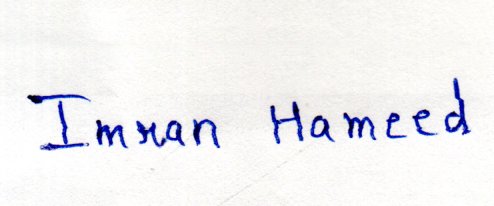 Imran Hameed